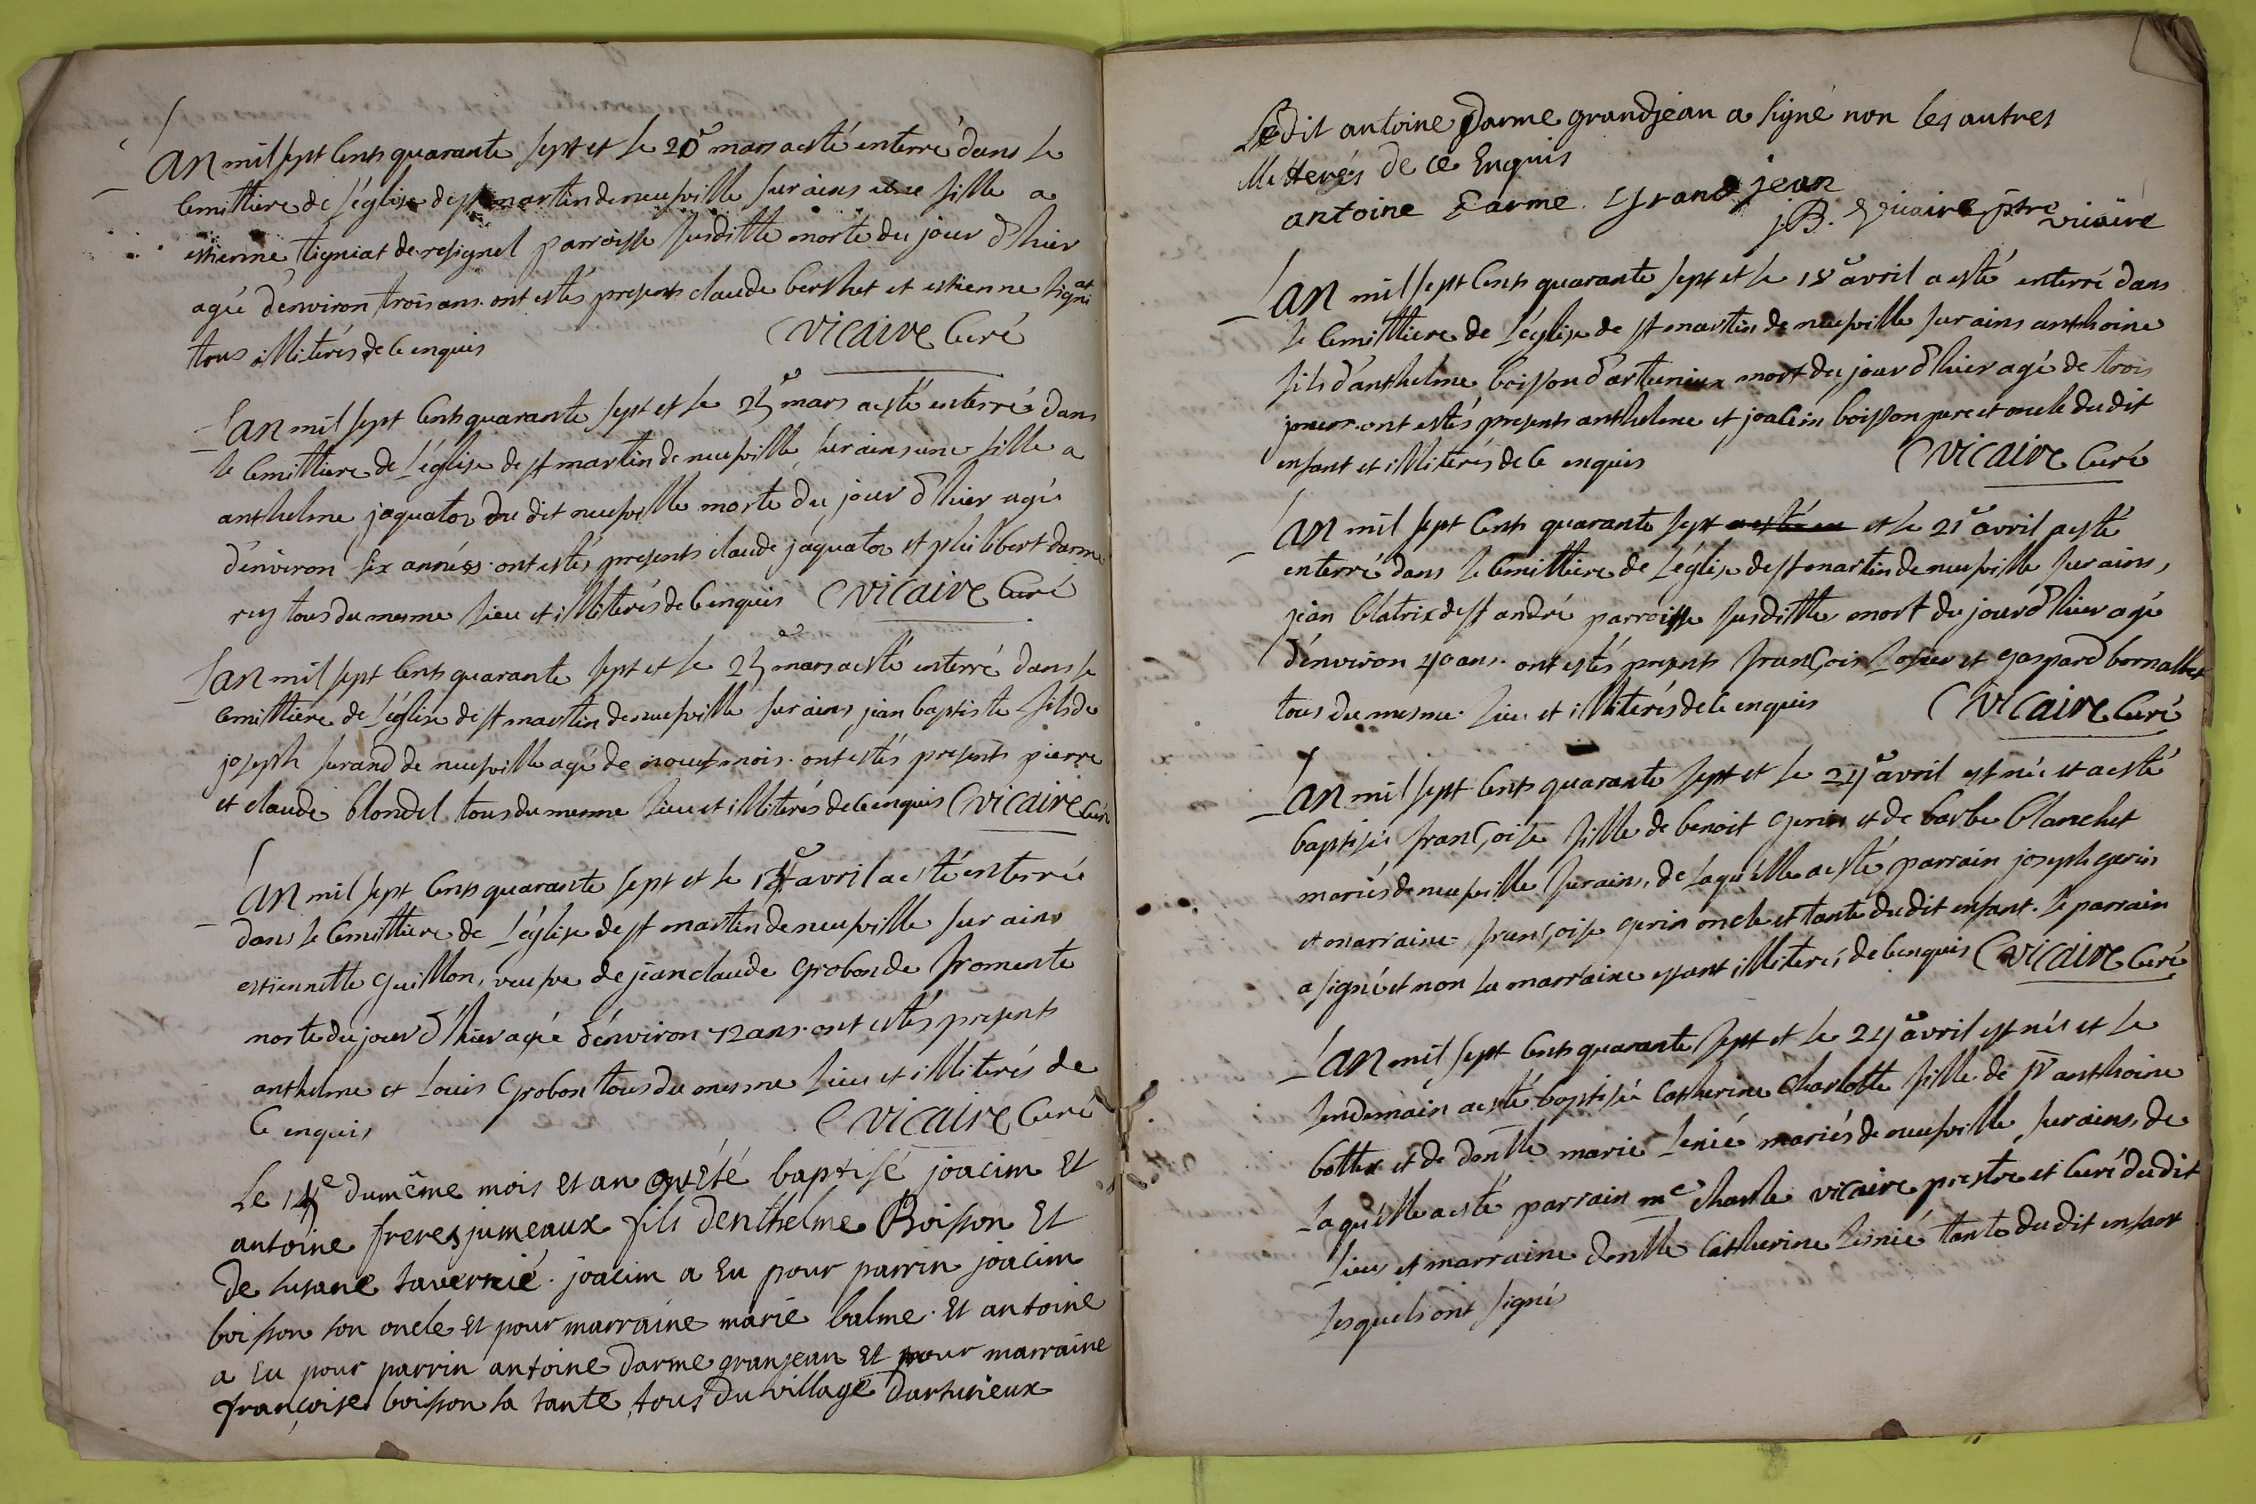 Lan mil sept cents quarante sept et le 20e mars a esté enterré dans le
cemittiere de l'églize de st martin de neufville sur ains une fille a
estienne tigniat de resignel parroisse susditte morte du jour d'hier
agée d'environ trois ans. ont estés presents claude berthet et estienne tigniat
tous illiterés de ce enquis vicaire curé
Lan mil sept cents quarante sept et le mars a esté enterré dans
le cemittiere de l'églize de st martin de neufville sur ains une fille a
anthelme jaquator du dit neufville morte du jour d'hier agée
d'environ six années. ont estés presents claude jaquator et philibert darme
rey tous du mesme lieu et illiterés de ce enquis vicaire curé
Lan mil sept cents quarante sept et le mars a esté enterré dans le
cemittiere de l'églize de st martin de neufville sur ains jean baptiste fils de
joseph surand de neufville agé de noeuf mois. ont estés presents pierre
et claude blondel tous du mesme lieu et illiterés de ce enquis vicaire curé
Lan mil sept cents quarante sept et le avril a esté enterrée
dans le cemittiere de l'églize de st martin de neufville sur ains
estiennette guillon, veufve de jean claude grobon de fromente
morte du jour d'hier agée d'environ 72 ans. ont estés presents
anthelme et louis grobon tous du mesme lieu et illiterés de
ce enquis vicaire curé
Le 14e du même mois et an ont été baptisé joacim et
antoine freres jumeaux fils denthelme Boisson et
de susane tavernié. joacim a eu pour parrin joacim
boisson son oncle et pour marraine marie balme. et antoine
a eu pour parrin antoine darme granjean et pour marraine
françoise boisson sa tante tous du village darturieux
Ledit antoine Darme grandjean a signé non les autres
illitterés de ce Enquis
antoine Darme Grand jean
j.B. vicaire ptre vicaire
Lan mil sept cents quarante sept et le 18e avril a esté enterré dans
le cemittiere de l'églize de st martin de neufville sur ains anthoine
fils d'anthelme boisson d'arturieux mort du jour d'hier agé de trois
jours. ont estés presents anthelme et joacim boisson pere et oncle dudit
enfant et illiterés de ce enquis vicaire curé
Lan mil sept cents quarante sept a esté en et le 21e avril a esté
enterré dans le cemittiere de l'églize de st martin de neufville sur ains,
jean blatrix de st andré parroisse susditte mort du jour d'hier agé
d'environ 40 ans. ont estés presents françois et gaspard bornallet
tous du mesme lieu et illiterés de ce enquis vicaire curé
Lan mil sept cents quarante sept et le 24e avril est née et a esté
baptisée françoise fille de benoit gerin et de barbe blanchet
mariés de neufville sur ains, de laquelle a esté parrain joseph gerin
et marraine françoise gerin oncle et tante dudit enfant. le parrain
a signé et non la marraine estant illiterée de ce enquis vicaire curé
Lan mil sept cents quarante sept et le 24e avril est née et le
lendemain a esté baptisée catherine charlotte fille de sr anthoine
bottex et de donlle marie mariés de neufville sur ains, de
laquelle a esté parrain me charle vicaire prestre et curé dudit
lieu et marraine donlle catherine tante dudit enfant
lesquels ont signé